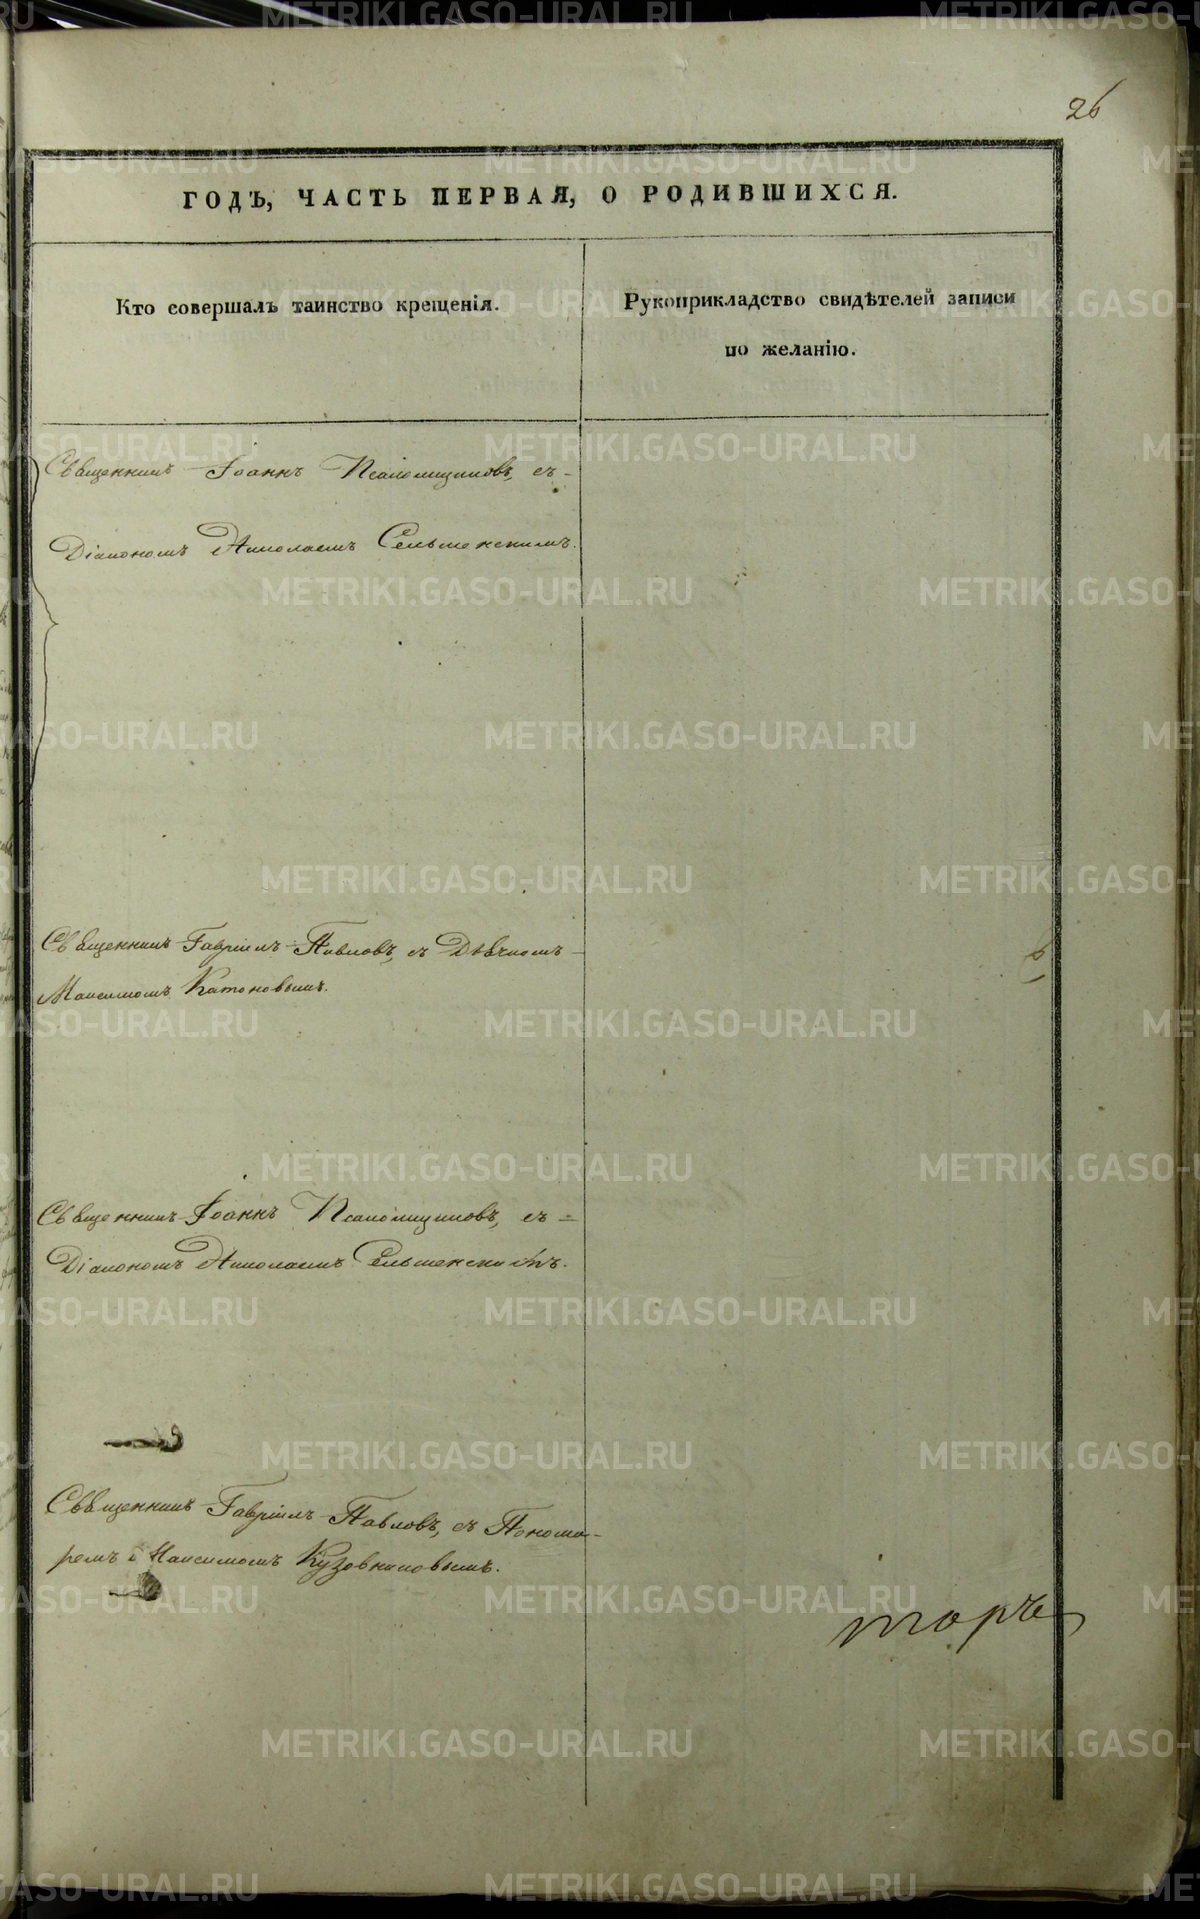 26
ГОДЪ, ЧАСТЬ ПЕРВАЯ, О РОДИВШИХСЯ.
Кто совершалъ таинство крещенія.
Рукоприкладство свидѣтелей записи
по желанію.
Священникъ Іоаннъ Псаломщиковъ, съ
Діакономъ Николаемъ Сельменскимъ.
Священникъ Гавріилъ Павловъ, съ Дьячкомъ
Максимомъ Катоновымъ.
Священникъ Іоаннъ Псаломщиковъ, съ
Діакономъ Николаемъ Сельменскимъ.
Священникъ Гавріилъ Павловъ, съ Понома-
ремъ Максимомъ Кузовниковымъ.
торъ
METRIKI.GASO-URAL.RU